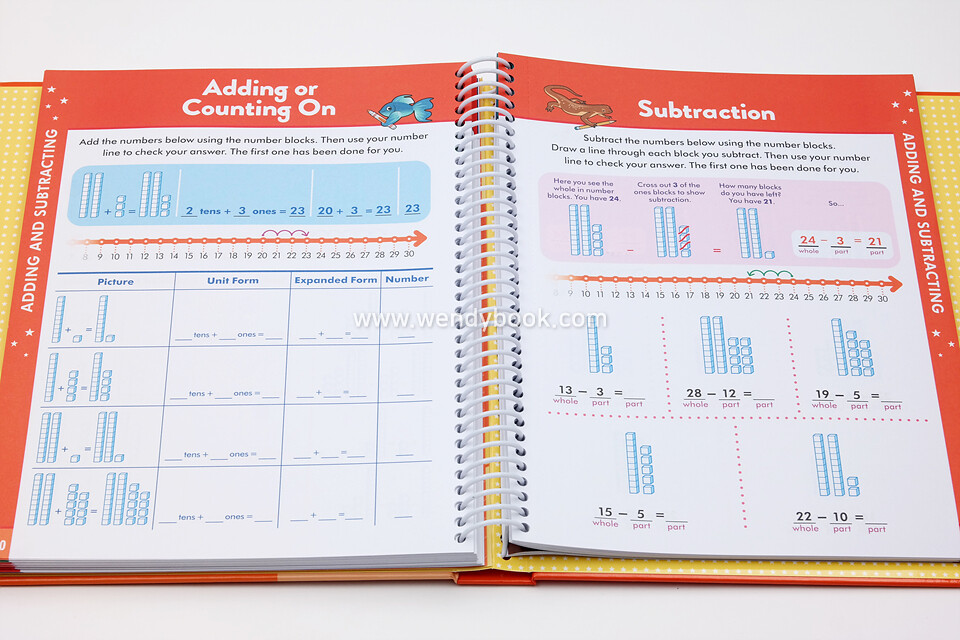 Adding or
Counting On
Add the numbers below using the number blocks. Then use your number
line to check your answer. The first one has been done for you.
+ = 2 tens + 3 ones = 23 20 + 3 = 23 23
8 9 10 11 12 13 14 15 16 17 18 19 20 21 22 23 24 25 26 27 28 29 30
Picture Unit Form Expanded Form Number
+ = ___ tens + ___ ones = ___ ___ + ___ = ___ ___
+ = ___ tens + ___ ones = ___ ___ + ___ = ___ ___
+ = ___ tens + ___ ones = ___ ___ + ___ = ___ ___
+ = ___ tens + ___ ones = ___ ___ + ___ = ___ ___
ADDING AND SUBTRACTING
0
www.wendybook.com
Subtraction
Subtract the numbers below using the number blocks.
Draw a line through each block you subtract. Then use your number
line to check your answer. The first one has been done for you.
Here you see the
whole in number
blocks. You have 24.
Cross out 3 of the
ones blocks to show
subtraction.
How many blocks
do you have left?
You have 21.
So...
– =
24 – 3 = 21
whole part part
8 9 10 11 12 13 14 15 16 17 18 19 20 21 22 23 24 25 26 27 28 29 30
13 – 3 = ___
whole part part
28 – 12 = ___
whole part part
19 – 5 = ___
whole part part
15 – 5 = ___
whole part part
22 – 10 = ___
whole part part
ADDING AND SUBTRACTING